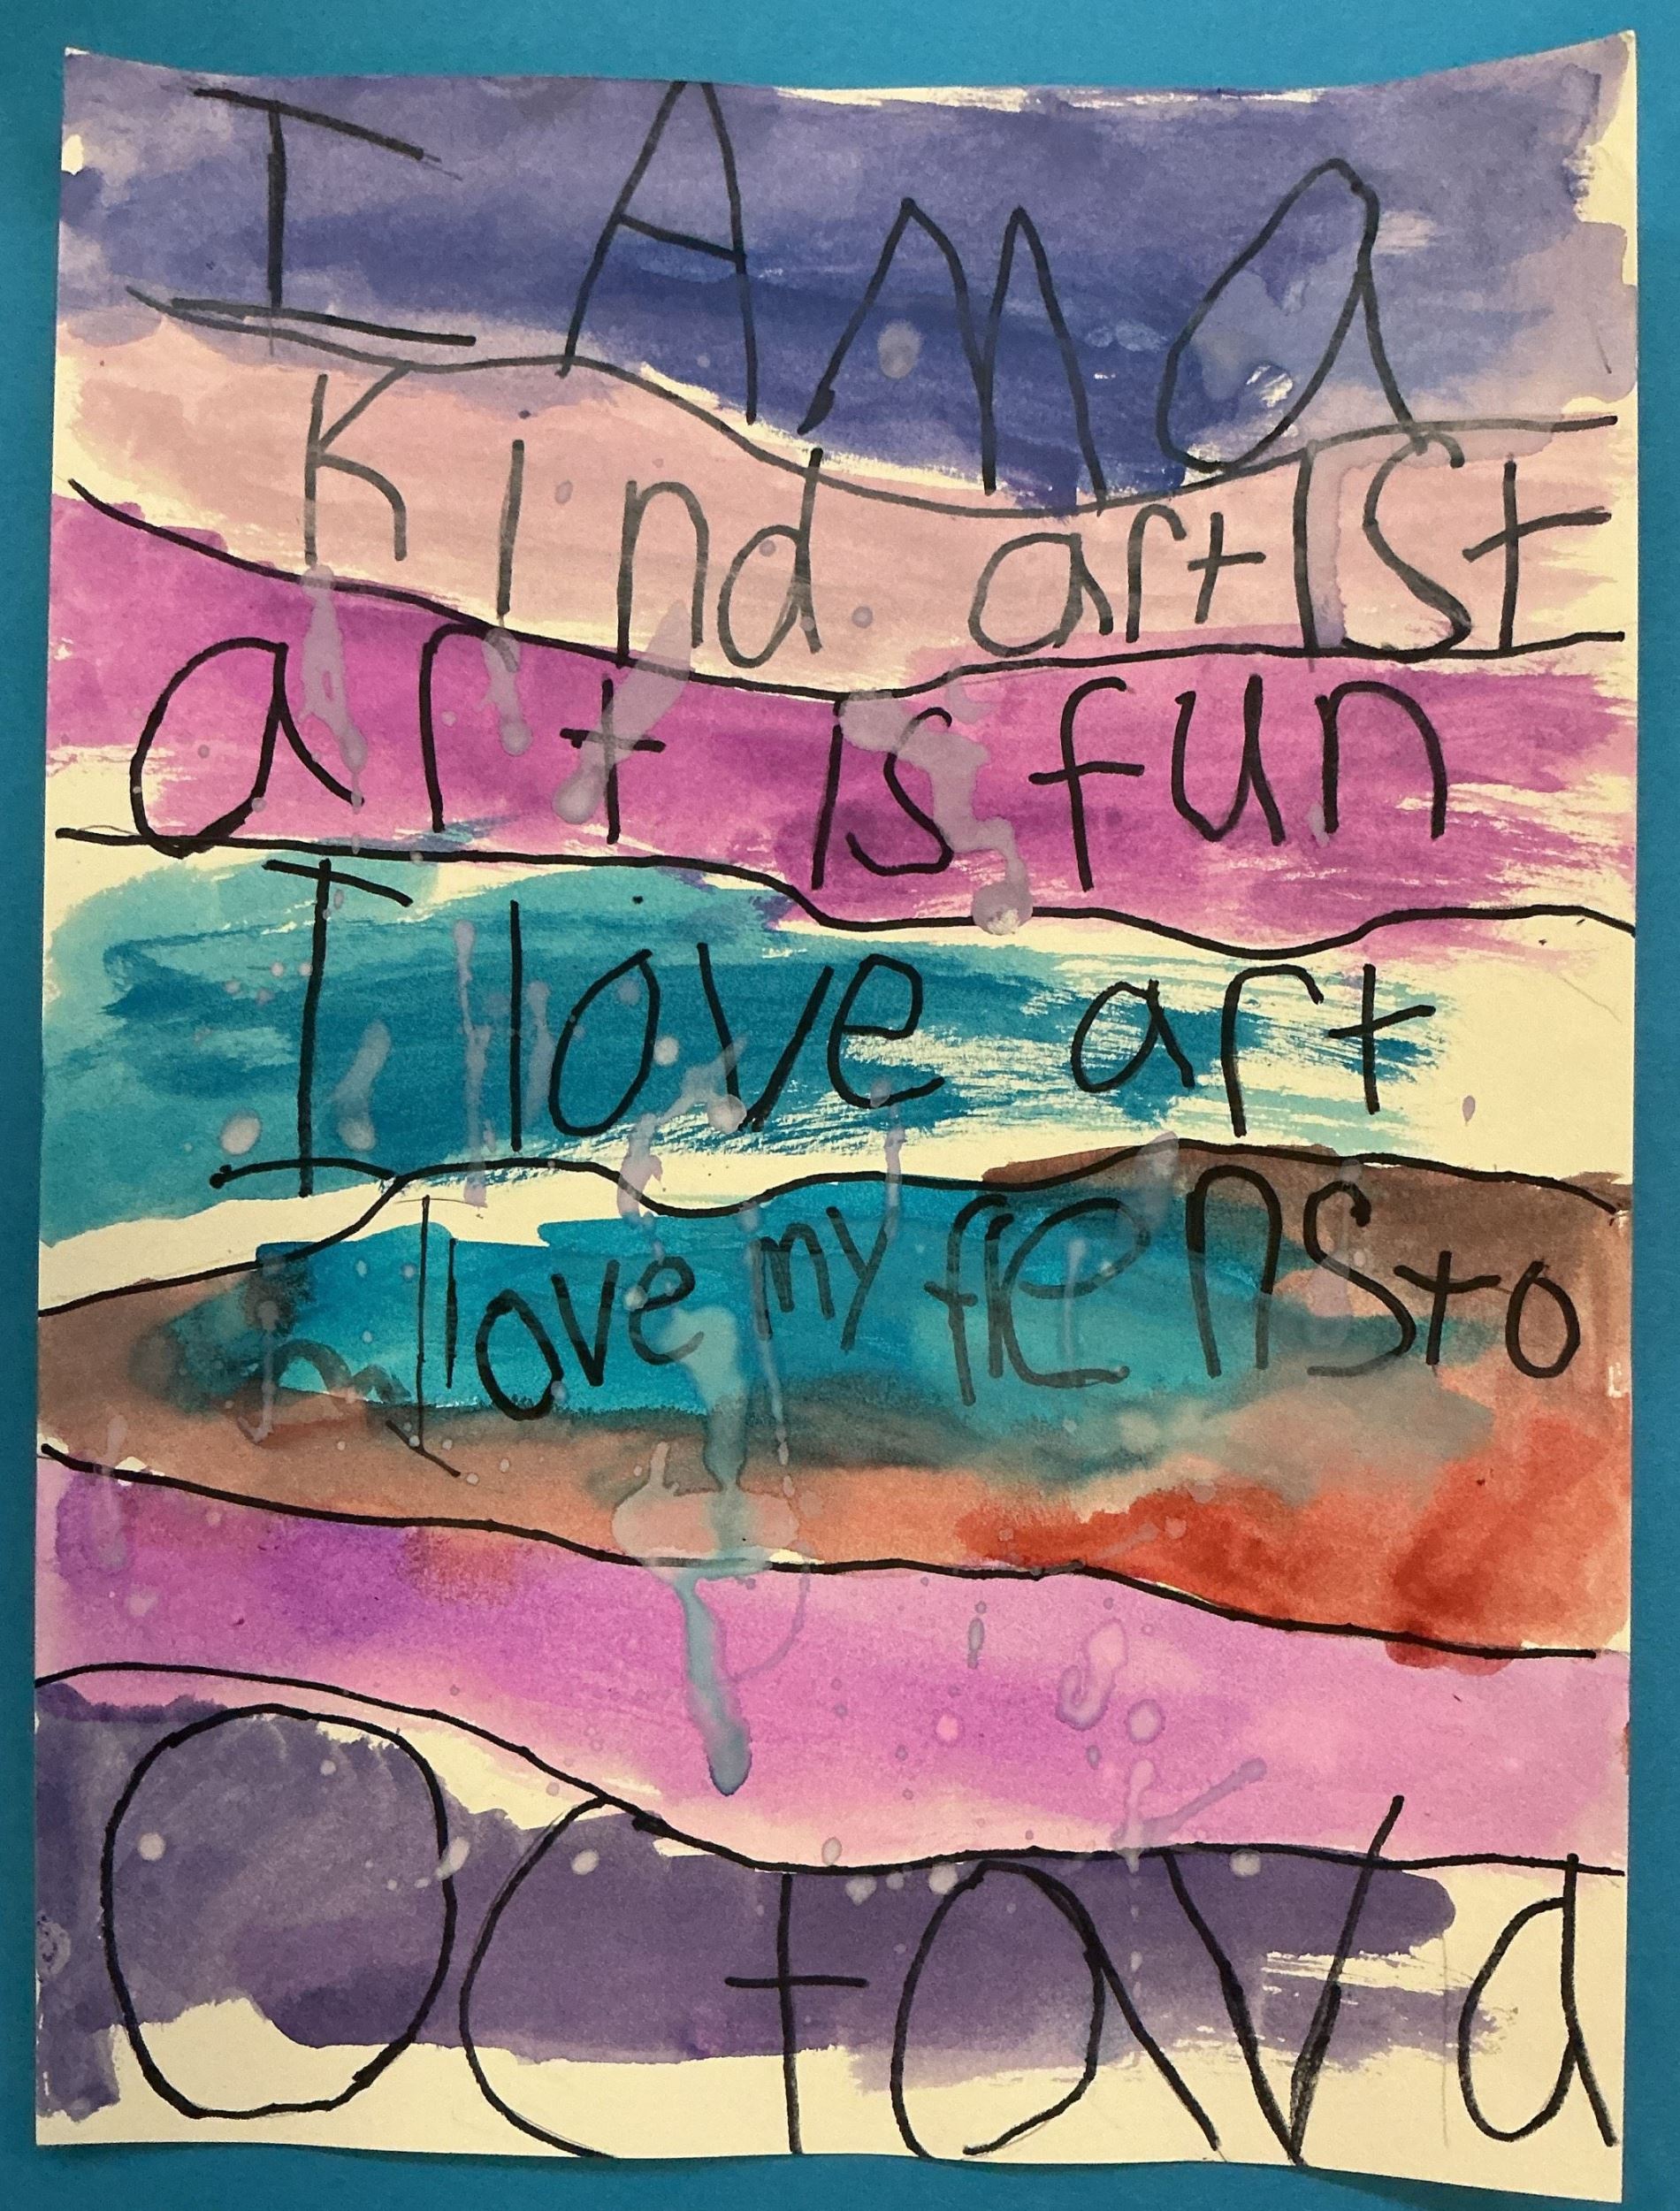 I AM a
Kind artist
art is fun
I love art
I love my friensto
OctaVa